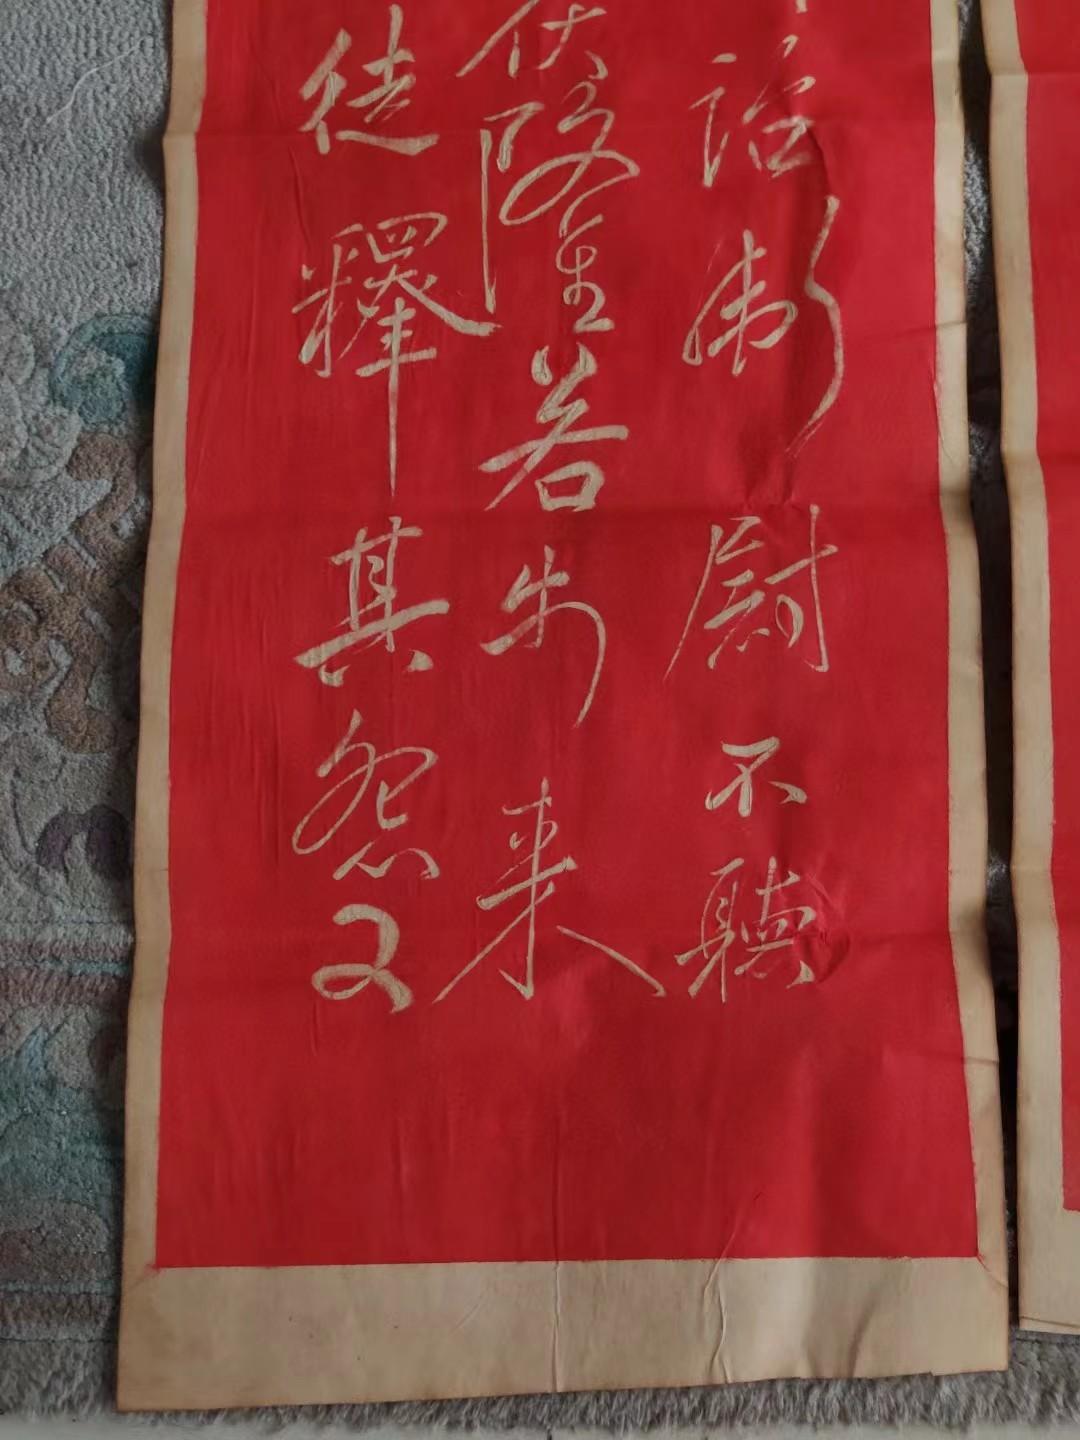 詔衛尉不聽
伏隆若步来
徒釋其怨又